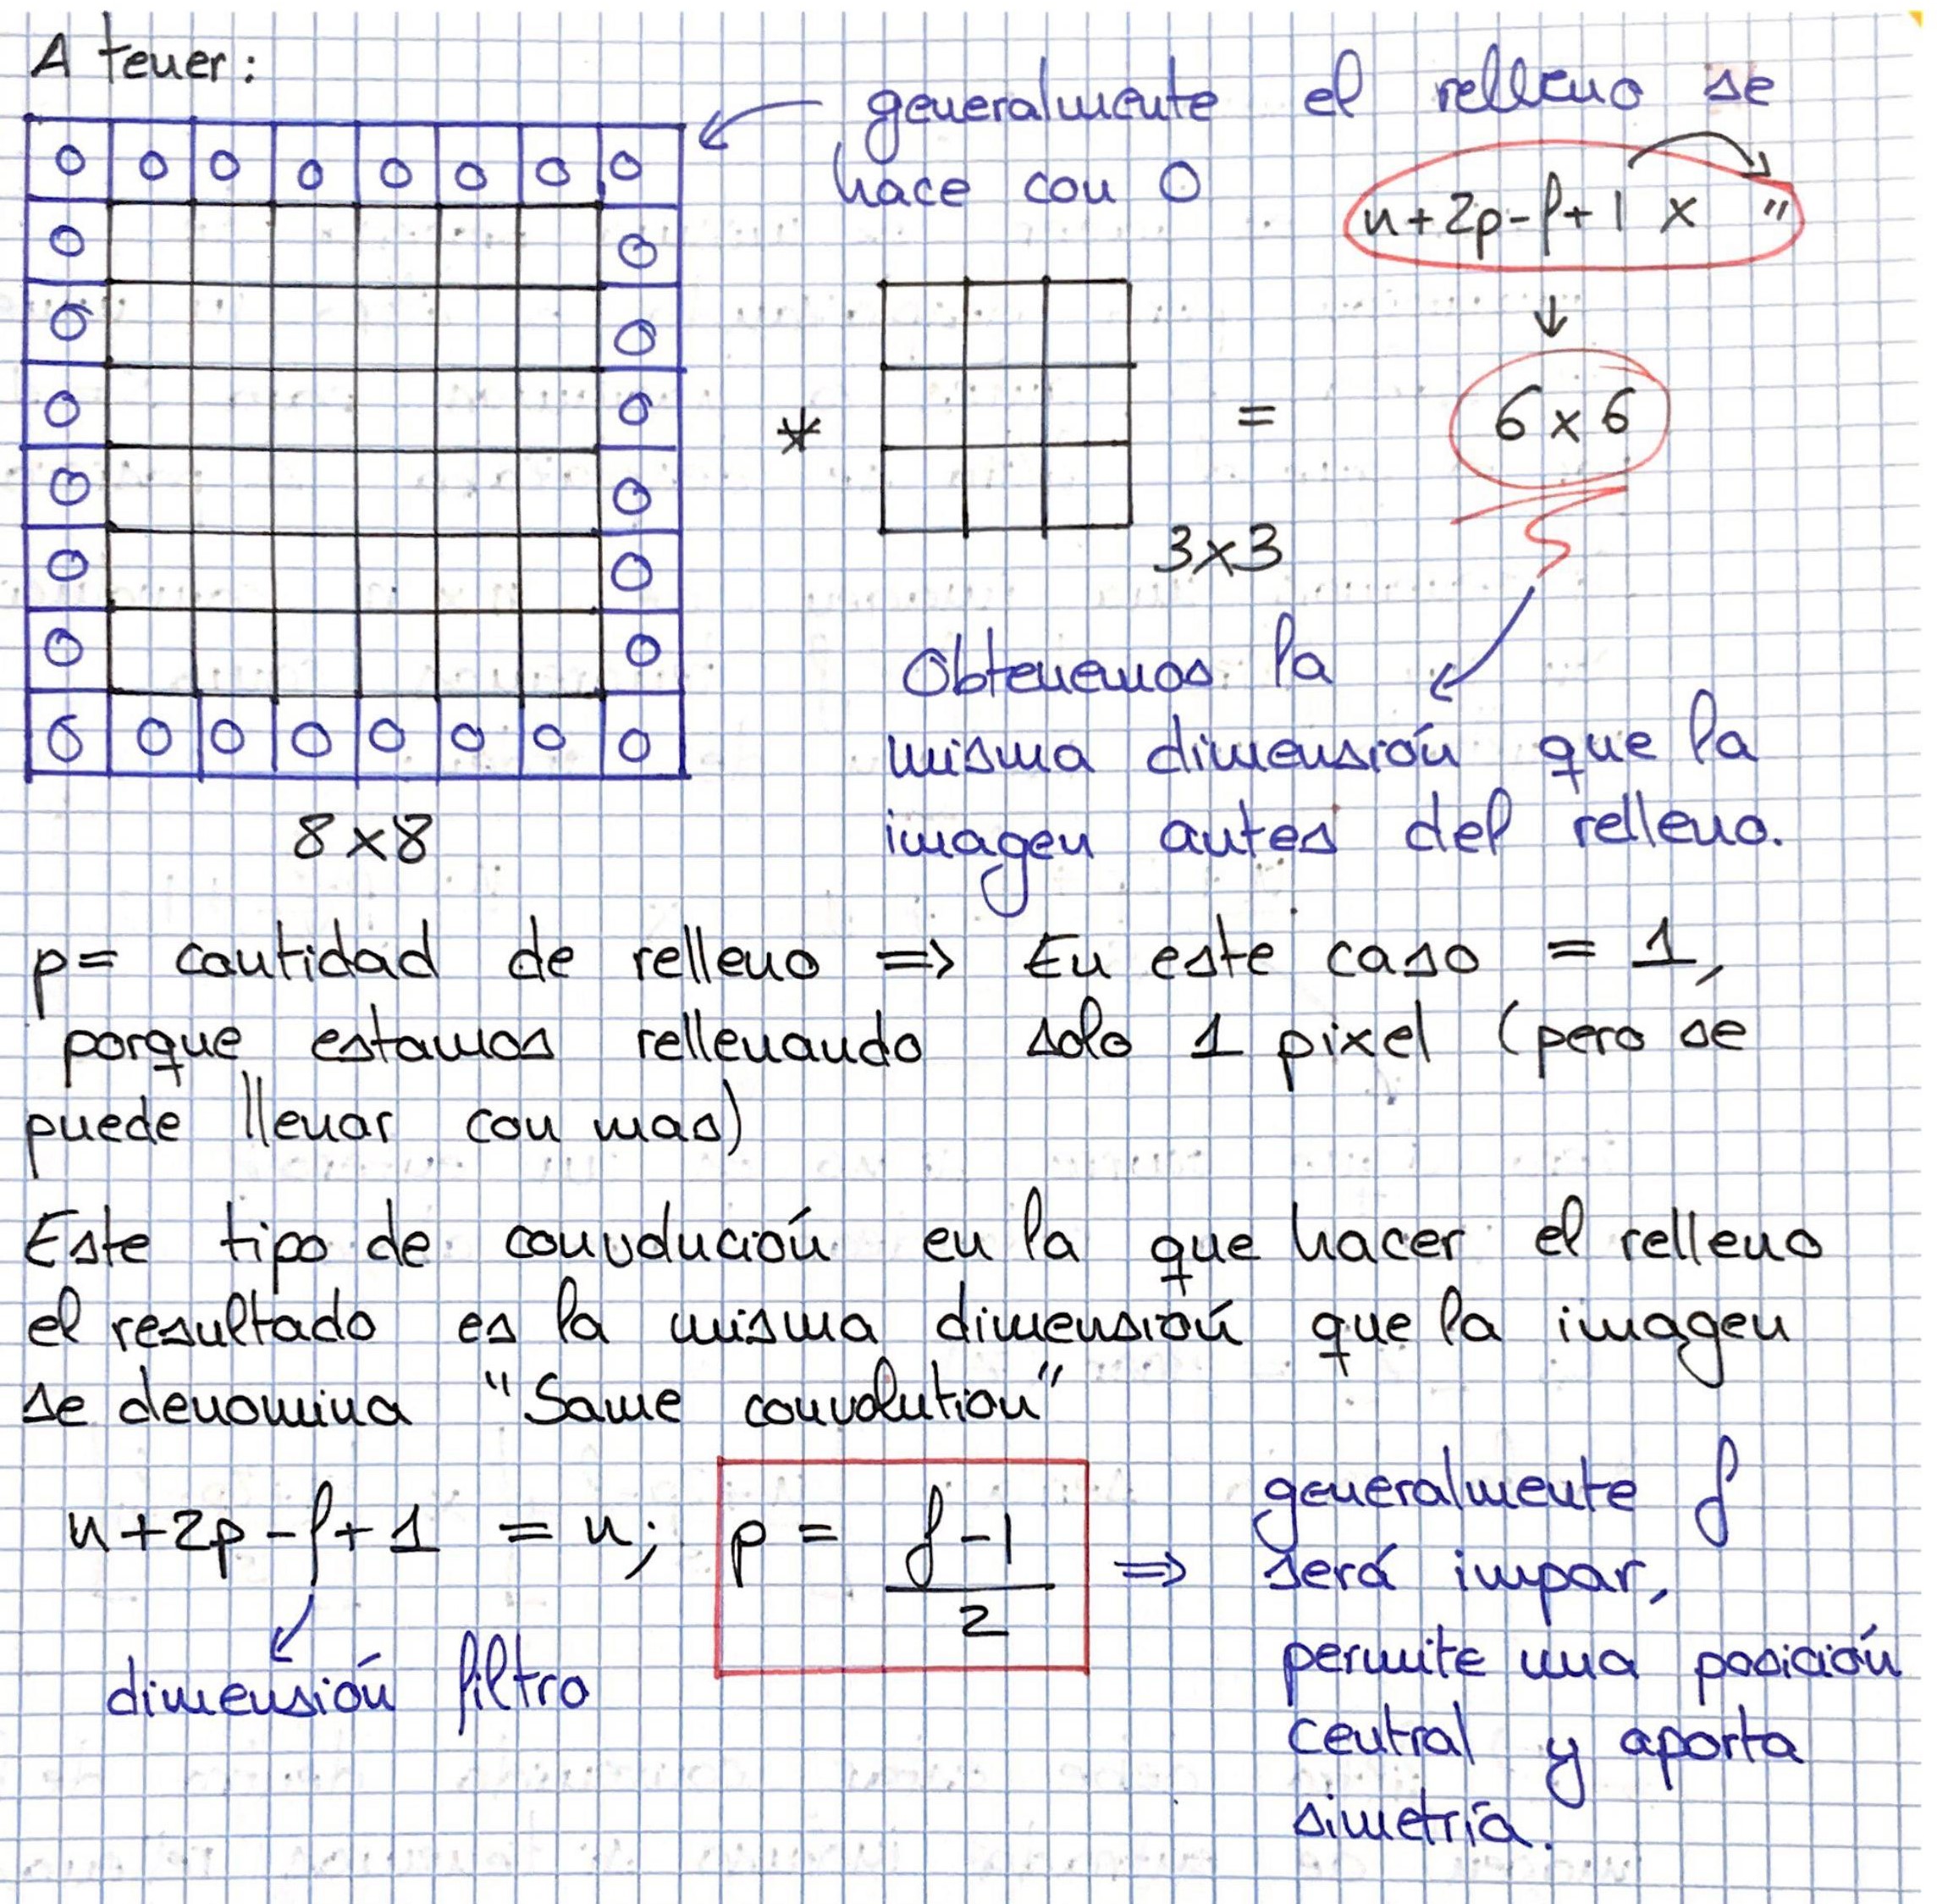 A tener:
generalmente el relleno se
hace con 0
0 0 0 0 0 0 0 0
0 0
0 0
0 0
0 0
0 0
0 0
0 0 0 0 0 0 0 0
8x8
*
3x3
=
n+2p-f+1 x "
↓
6x6
Obtenemos la
misma dimensión que la
imagen antes del relleno.
p= cantidad de relleno => En este caso = 1,
porque estamos rellenando solo 1 pixel (pero se
puede llenar con mas)
Este tipo de convolución en la que hacer el relleno
el resultado es la misma dimensión que la imagen
se denomina "Same convolution"
n+2p-f+1 = n; p = f-1/2 => generalmente f
será impar,
permite una posición
central y aporta
simetría.
dimensión filtro